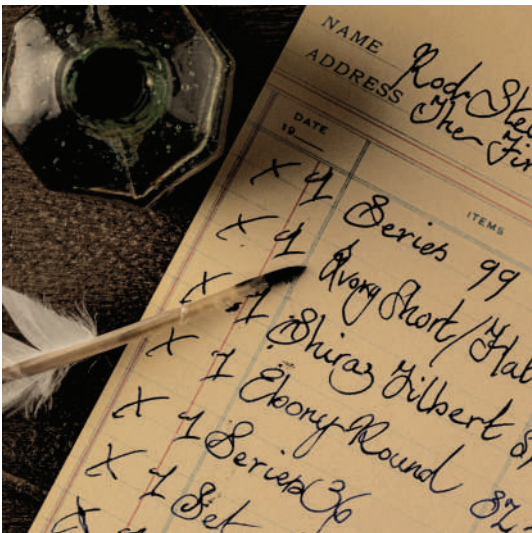 NAME Rod Ste
ADDRESS The Fir
DATE ITEMS
19
x 1 Series 99
x 1 Ivory Short/Hal
x 1 Shiraz Filbert
x 1 Ebony Round
x 1 Series 36
x 1 Set